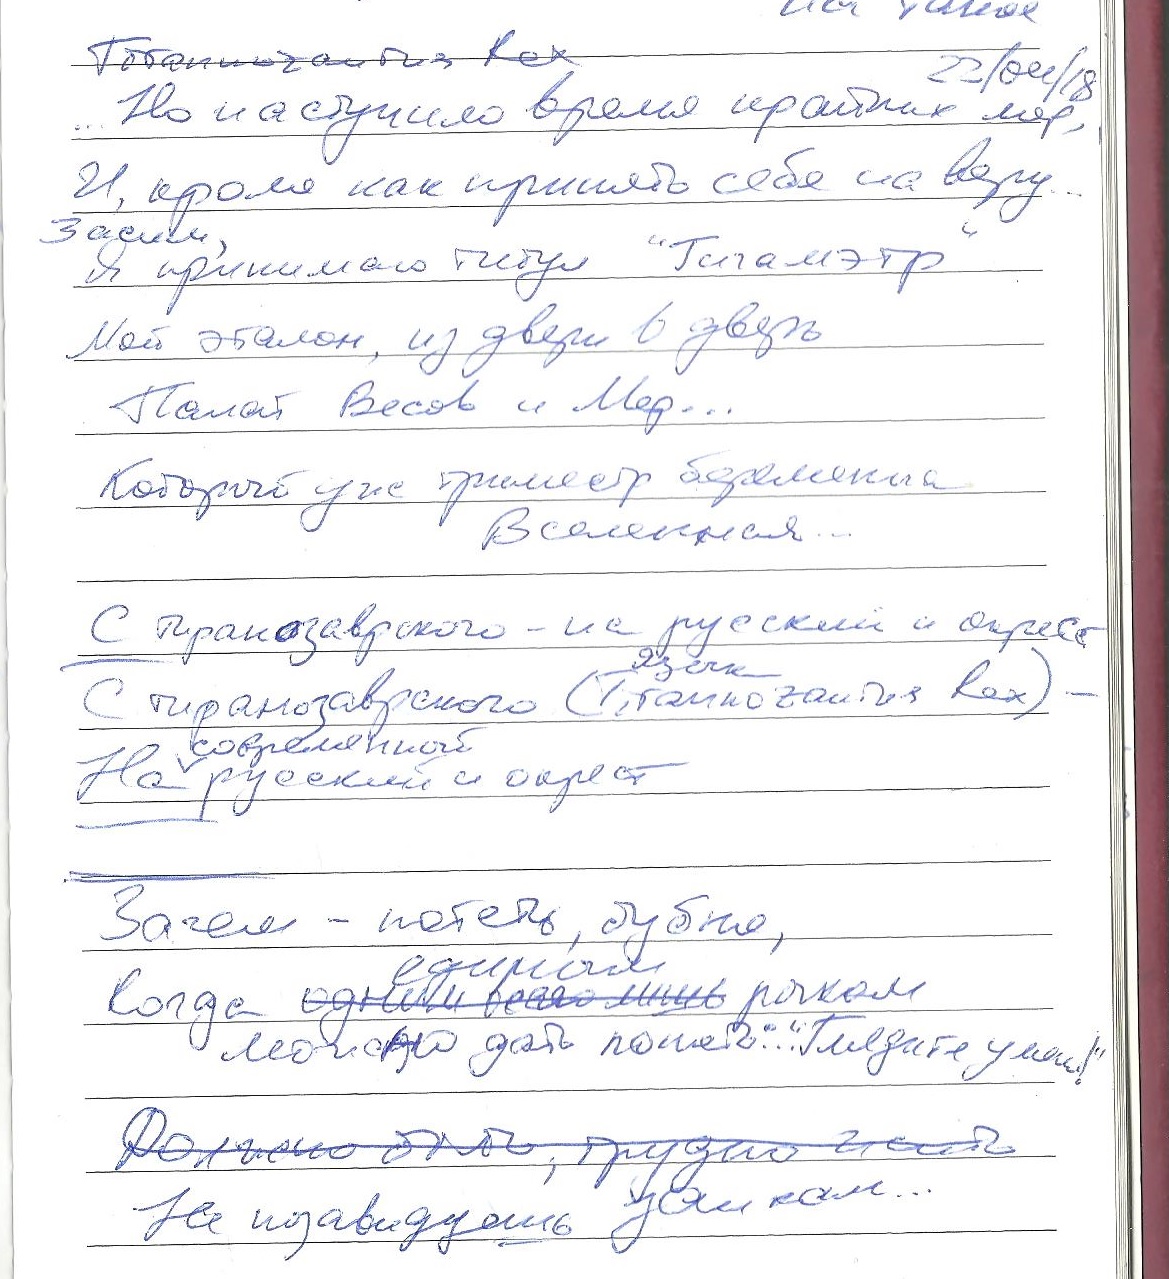 Титанногантия Rex
22/04/18
... Но наступило время кратких мер,
И, кроме как принять себя на веру...
Засим,
Я принимаю титул "Гигамэтр"
Мой эталон, из двери в дверь
Палат Весов и Мер...
Который уже триместр беременна
Вселенная...
С тиранозаврского - на русский и окрест
язык
С тиранозаврского (Титанногантия Rex) -
современный
На русский и окрест
Зачем - потеть, дубня,
единым
Когда одним всего лишь рыком
можно дать понять: "Глядите у меня!"
Должно быть, трудно
Не позавидуешь заикам...